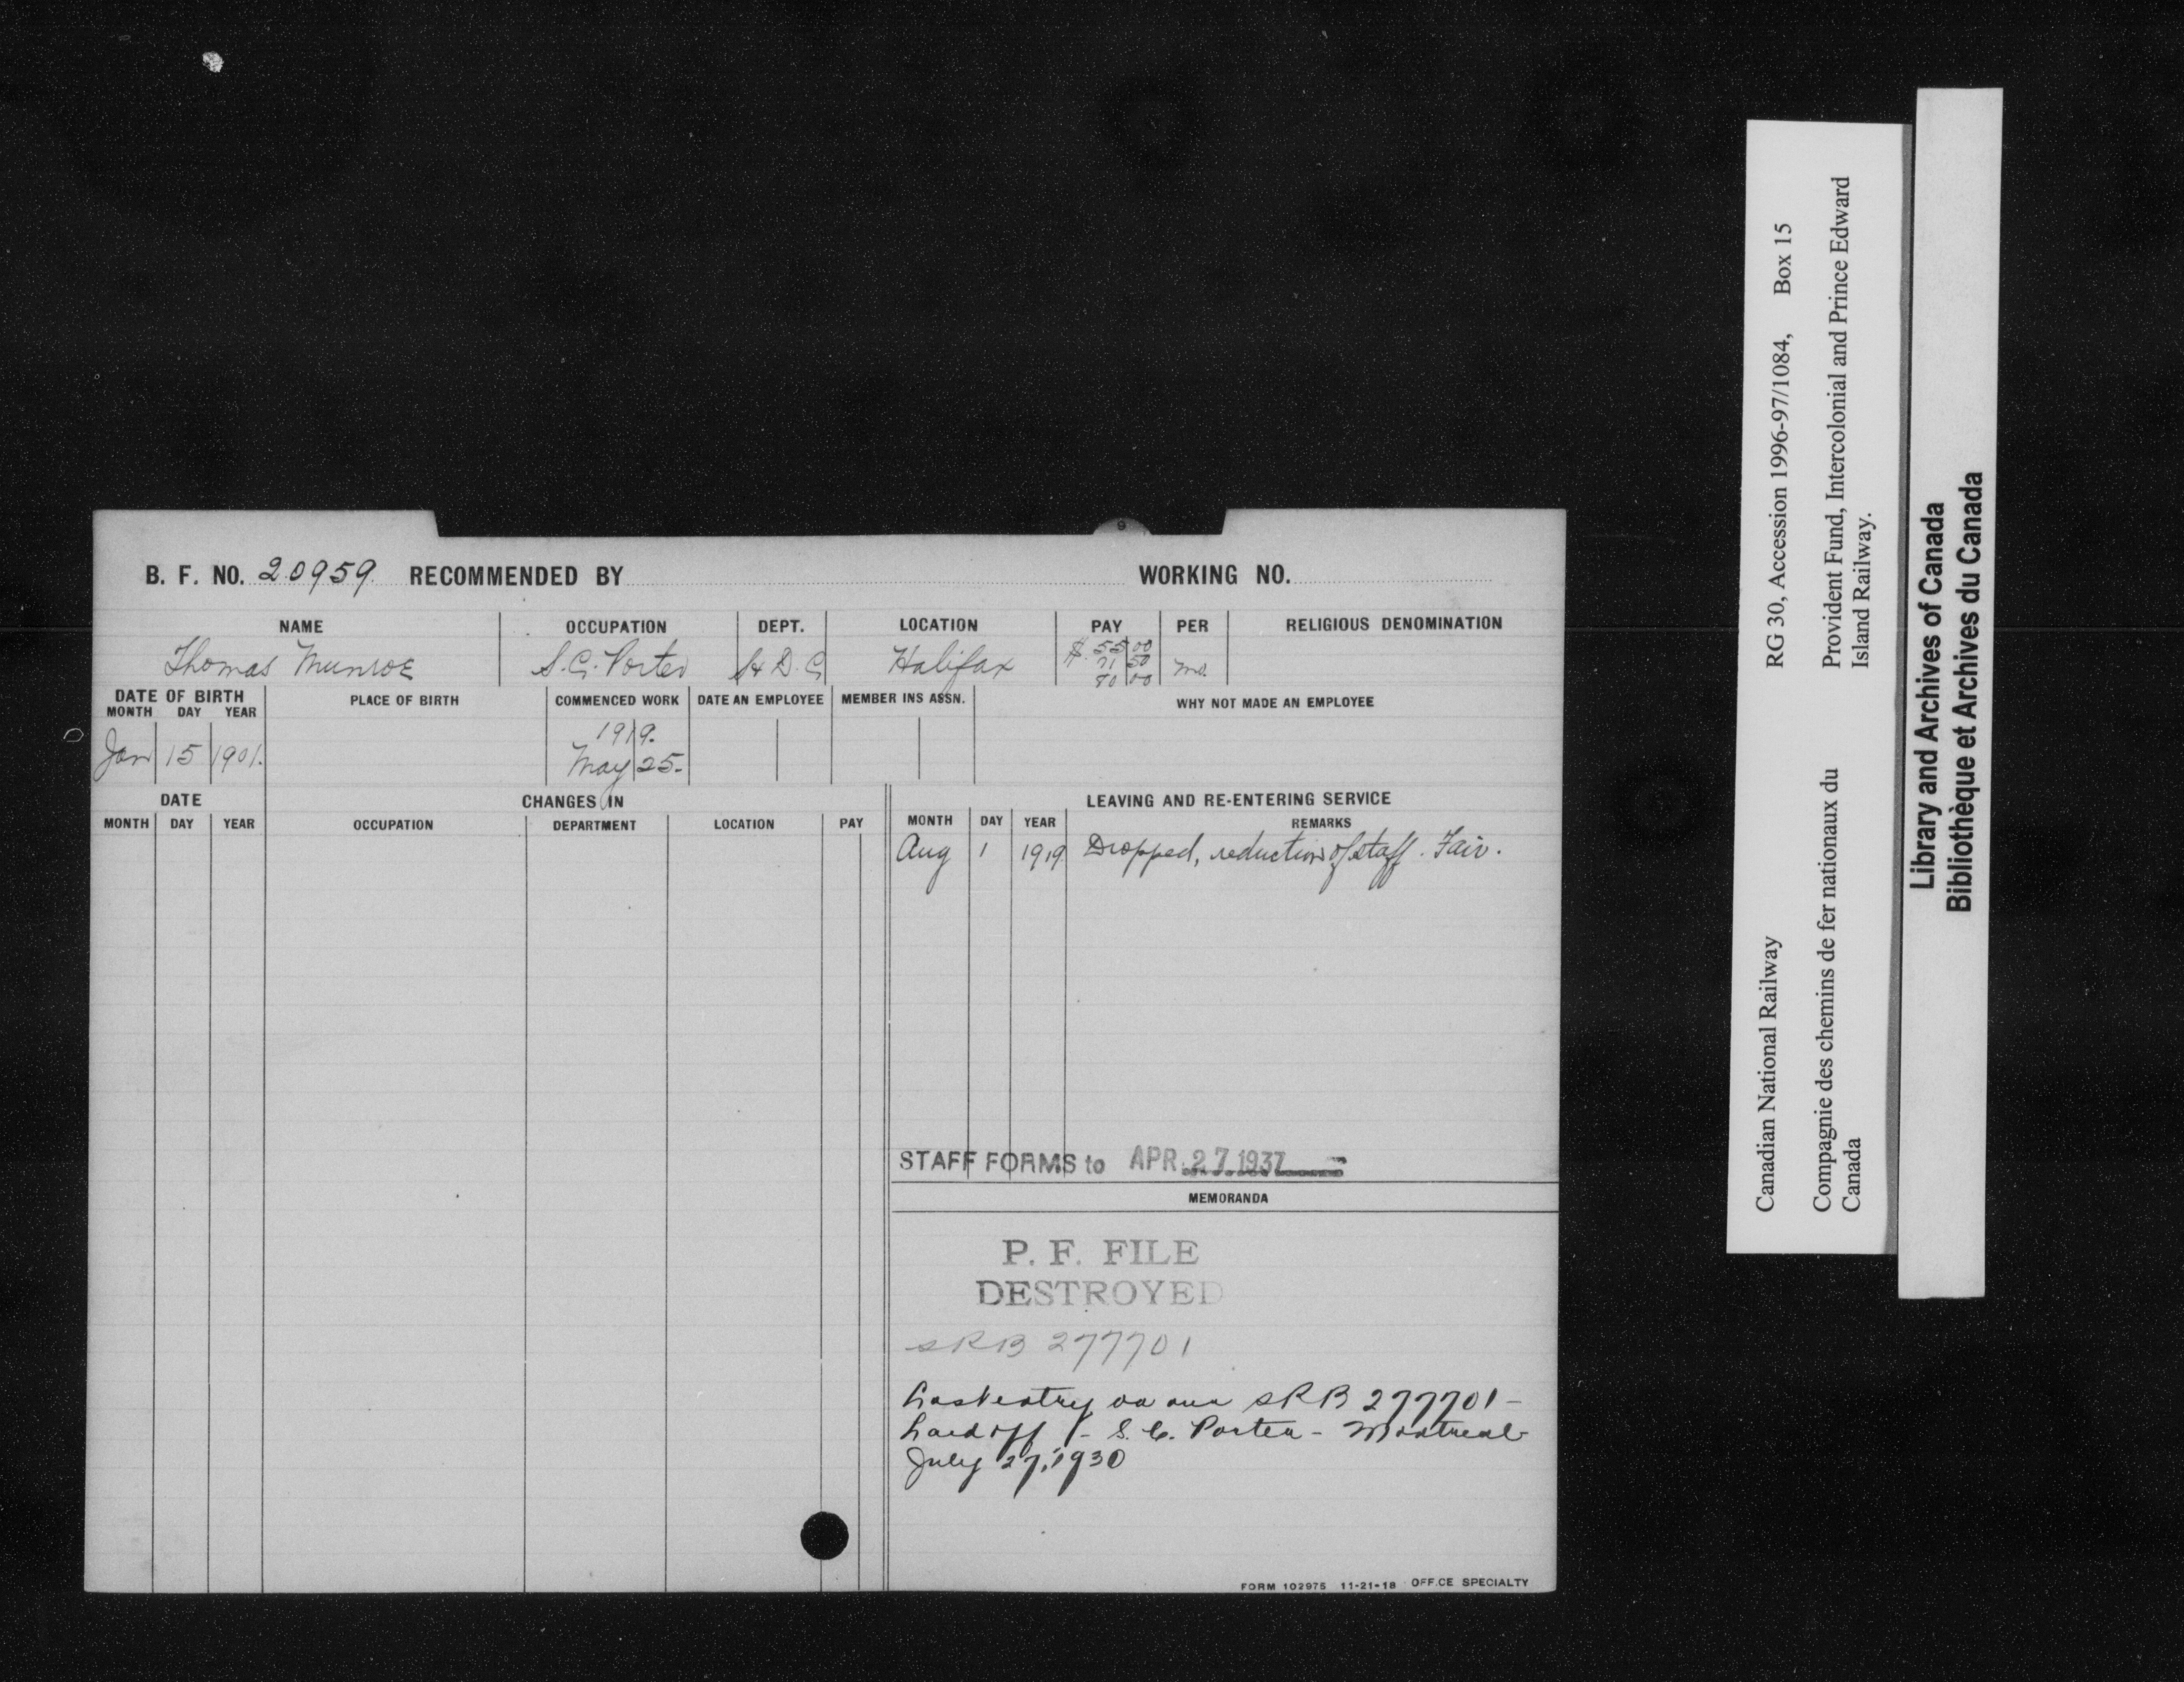 B. F. NO. 20959 RECOMMENDED BY WORKING NO.
NAME OCCUPATION DEPT. LOCATION PAY PER RELIGIOUS DENOMINATION
Thomas Munroe S.C. Porter S & D. C Halifax $ 55 00 mo.
71 50
80 00
DATE OF BIRTH PLACE OF BIRTH COMMENCED WORK DATE AN EMPLOYEE MEMBER INS ASSN. WHY NOT MADE AN EMPLOYEE
MONTH DAY YEAR
1919.
Jan 15 1901. May 25.
DATE CHANGES IN LEAVING AND RE-ENTERING SERVICE
MONTH DAY YEAR OCCUPATION DEPARTMENT LOCATION PAY MONTH DAY YEAR REMARKS
Aug 1 1919 Dropped, reduction of staff. Fair.
STAFF FORMS to APR. 27 1937
MEMORANDA
P. F. FILE
DESTROYED
SRB 277701
Last entry on our SRB 277701 -
Laid off - S. C. Porter - Montreal
July 27, 1930
FORM 102975 11-21-18 OFFICE SPECIALTY
Canadian National Railway RG 30, Accession 1996-97/1084, Box 15
Compagnie des chemins de fer nationaux du
Canada
Provident Fund, Intercolonial and Prince Edward
Island Railway.
Library and Archives of Canada
Bibliothèque et Archives du Canada